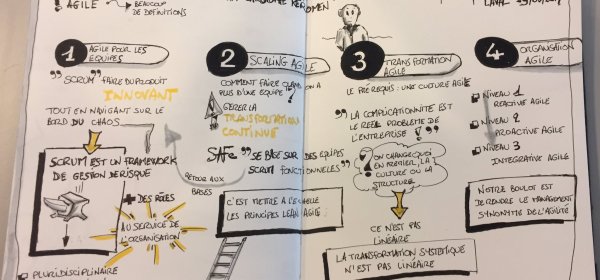 ! AGILE → BEAUCOUP
DE DEFINITIONS
OMEN
LAVAL
1 AGILE POUR LES
EQUIPES
"SCRUM" FAIRE DU PRODUIT
INNOVANT
TOUT EN NAVIGANT SUR LE
BORD DU CHAOS
SCRUM EST UN FRAMEWORK
DE GESTION DE RISQUE
+ DES RÔLES
AU SERVICE DE
L'ORGANISATION
PLURIDISCIPLINAIRE
2 SCALING AGILE
COMMENT FAIRE QUAND ON A
PLUS D'UNE EQUIPE !
GERER LA
TRANSFORMATION
CONTINUE
SAFe "SE BASE SUR DES EQUIPES
SCRUM FONCTIONNELLES"
RETOUR AUX
BASES
C'EST METTRE A L'ECHELLE
LES PRINCIPES LEAN AGILE
3 TRANSFORMATION
AGILE
LE PREREQUIS : UNE CULTURE AGILE
"LA COMPLICATIONNITE EST
LE REEL PROBLEME DE
L'ENTREPRISE !"
? ON CHANGE QUOI
EN PREMIER, LA
CULTURE OU LA
STRUCTURE
CE N'EST PAS
LINEAIRE
LA TRANSFORMATION SYSTEMIQUE
N'EST PAS LINEAIRE
4 ORGANISATION
AGILE
NIVEAU 1
REACTIVE AGILE
NIVEAU 2
PROACTIVE AGILE
NIVEAU 3
INTEGRATIVE AGILE
NOTRE BOULOT EST
DE RENDRE LE MANAGEMENT
SYNONYME DE L'AGILITÉ